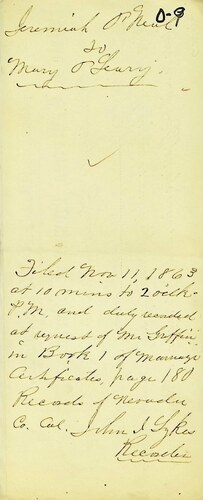 O-9
Jeremiah O'Neal
to
Mary O'Leary.
Filed Nov 11, 1863
at 10 mins to 2 o'clk
P.M. and duly recorded
at request of Mr Griffin
in Book 1 of Marriage
Certificates, page 180
Records of Nevada
Co. Cal. John I. Sykes
Recorder